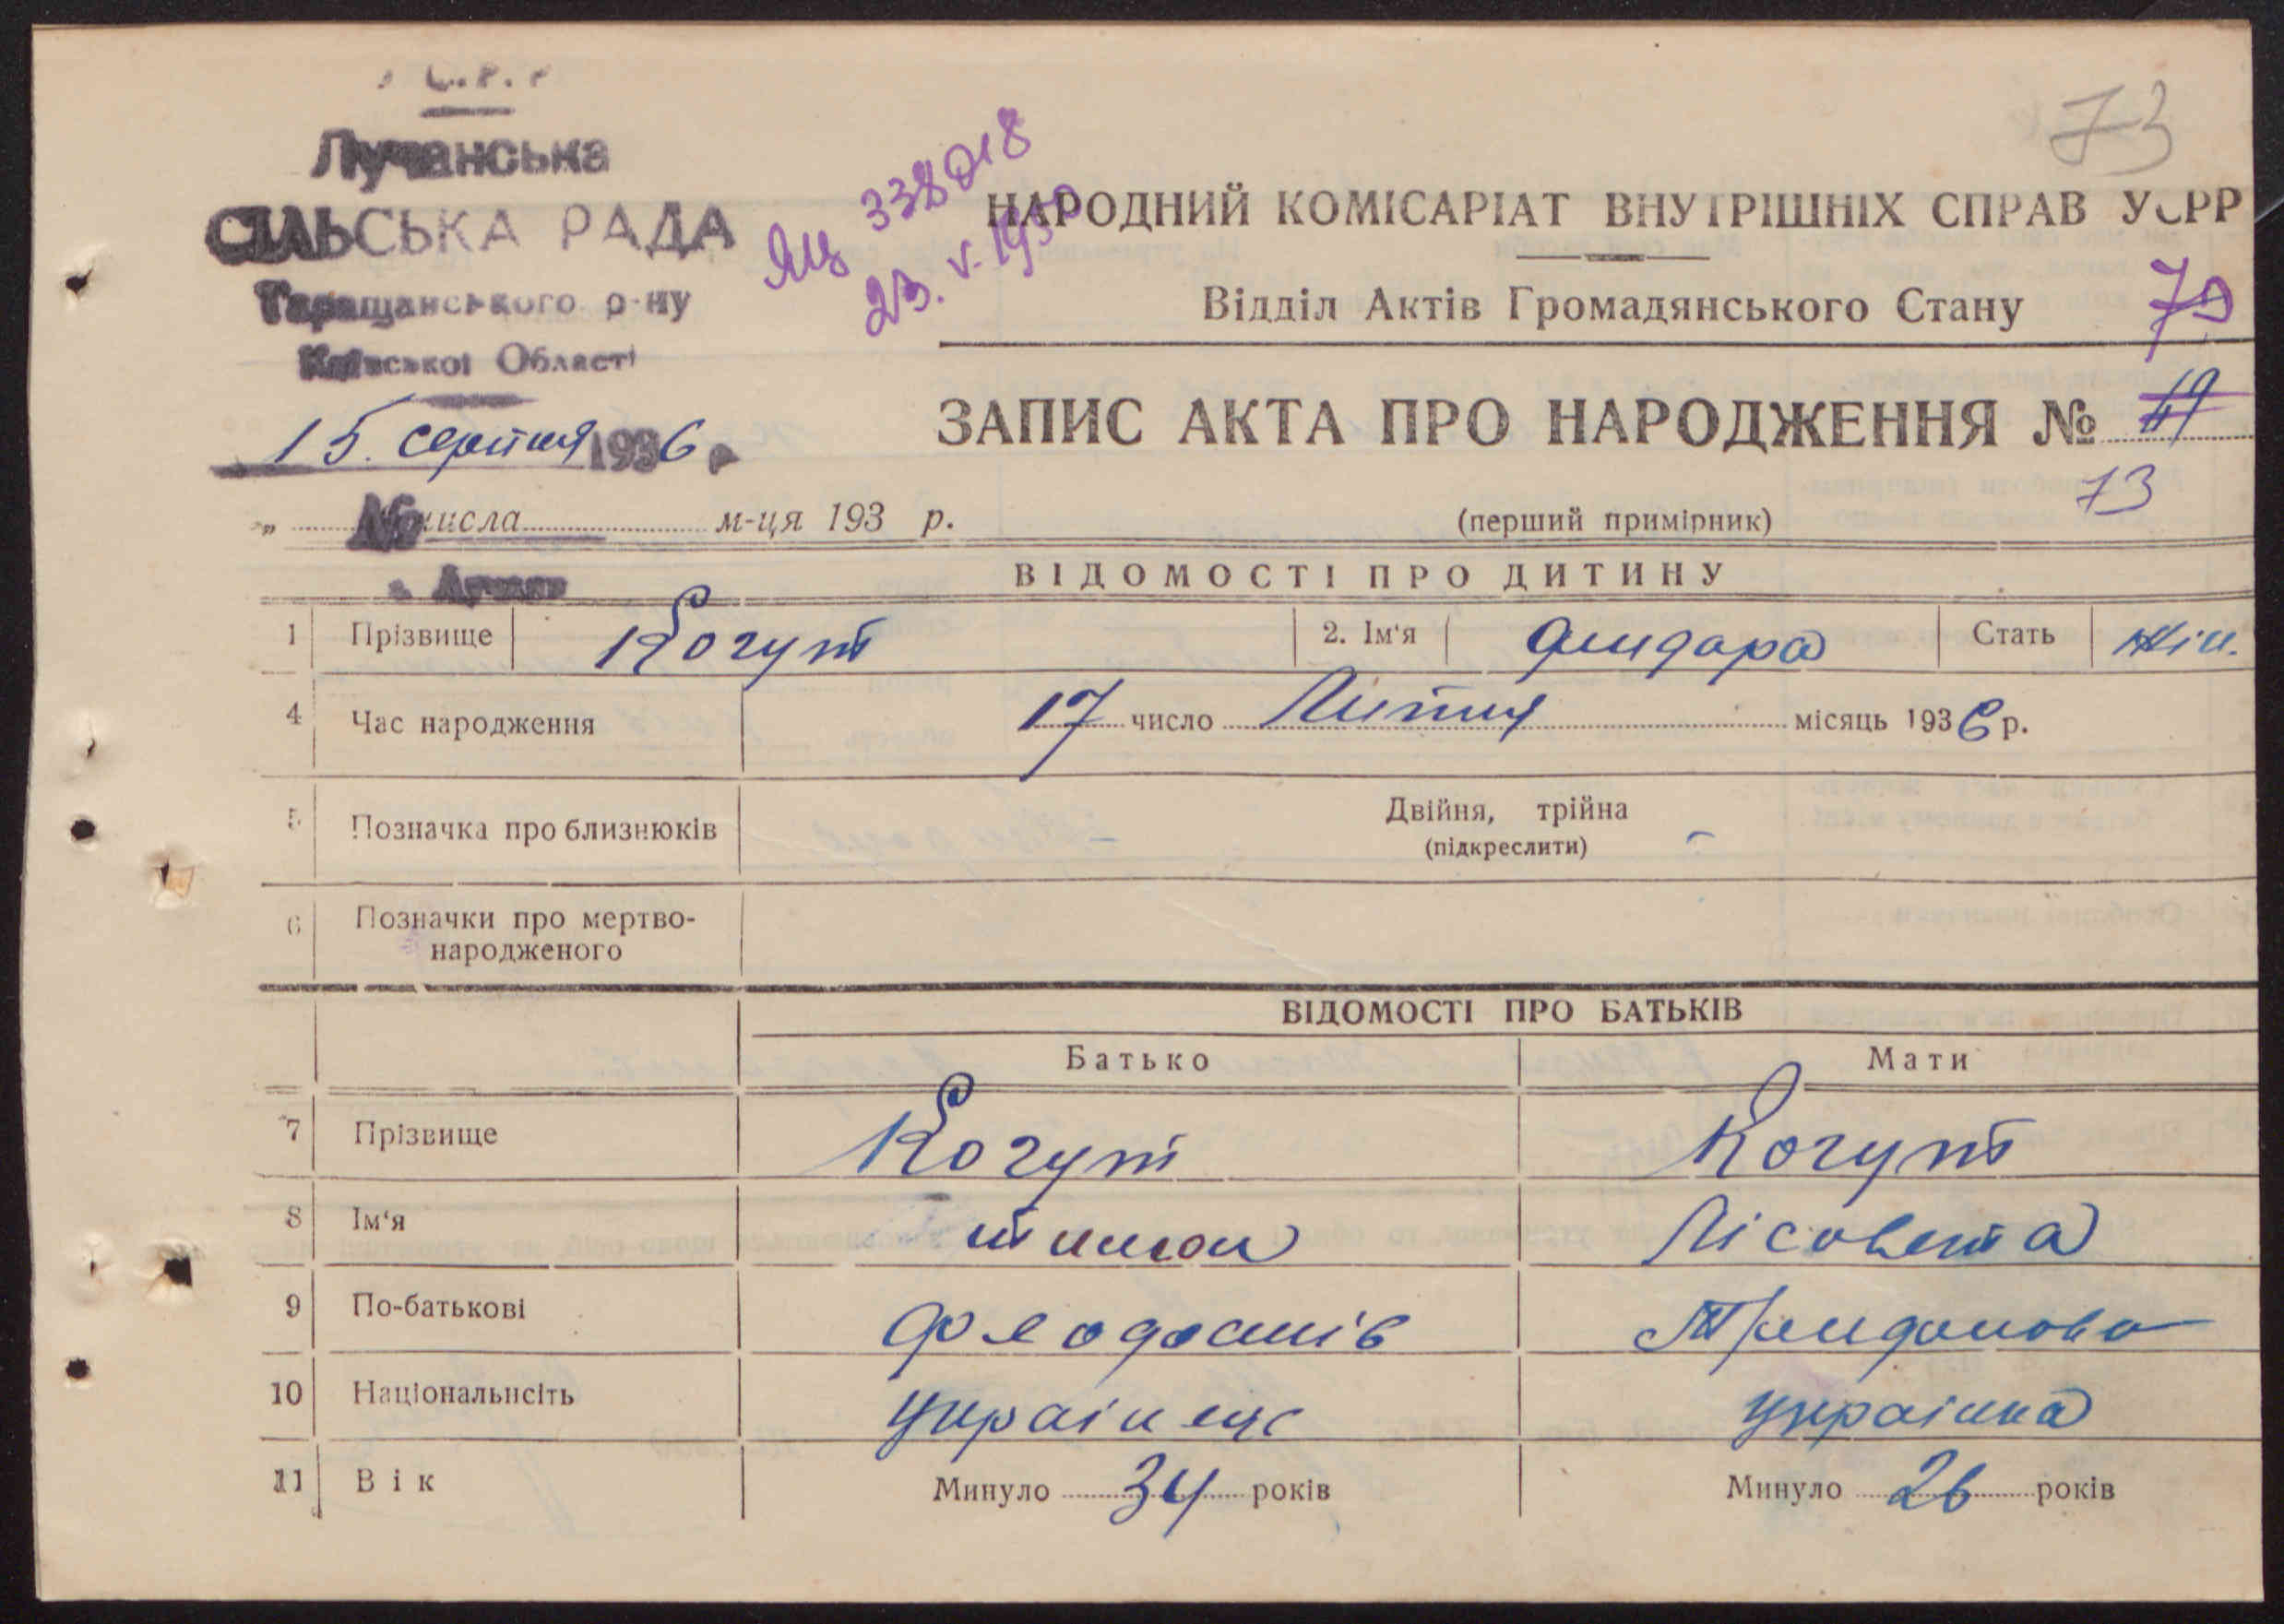 С.Р.Р
73
Лучанська
СІЛЬСЬКА РАДА
Таращанського р-ну
Київської Області
15. серпня 1936 р
№
ЯЦ 338018
23. V. 19
НАРОДНИЙ КОМІСАРІАТ ВНУТРІШНІХ СПРАВ УСРР
Відділ Актів Громадянського Стану
ЗАПИС АКТА ПРО НАРОДЖЕННЯ №
73
„ числа м-ця 193 р.
(перший примірник)
ВІДОМОСТІ ПРО ДИТИНУ
1 Прізвище Когут 2. Ім'я Стать жін.
4 Час народження 17 число Липня місяць 1936 р.
5 Позначка про близнюків Двійня, трійна
(підкреслити) -
6 Позначки про мертво-
народженого
ВІДОМОСТІ ПРО БАТЬКІВ
Батько Мати
7 Прізвище Когут Когут
8 Ім'я Лісовета
9 По-батькові
10 Національнсіть українец українка
11 Вік Минуло 34 років Минуло 26 років